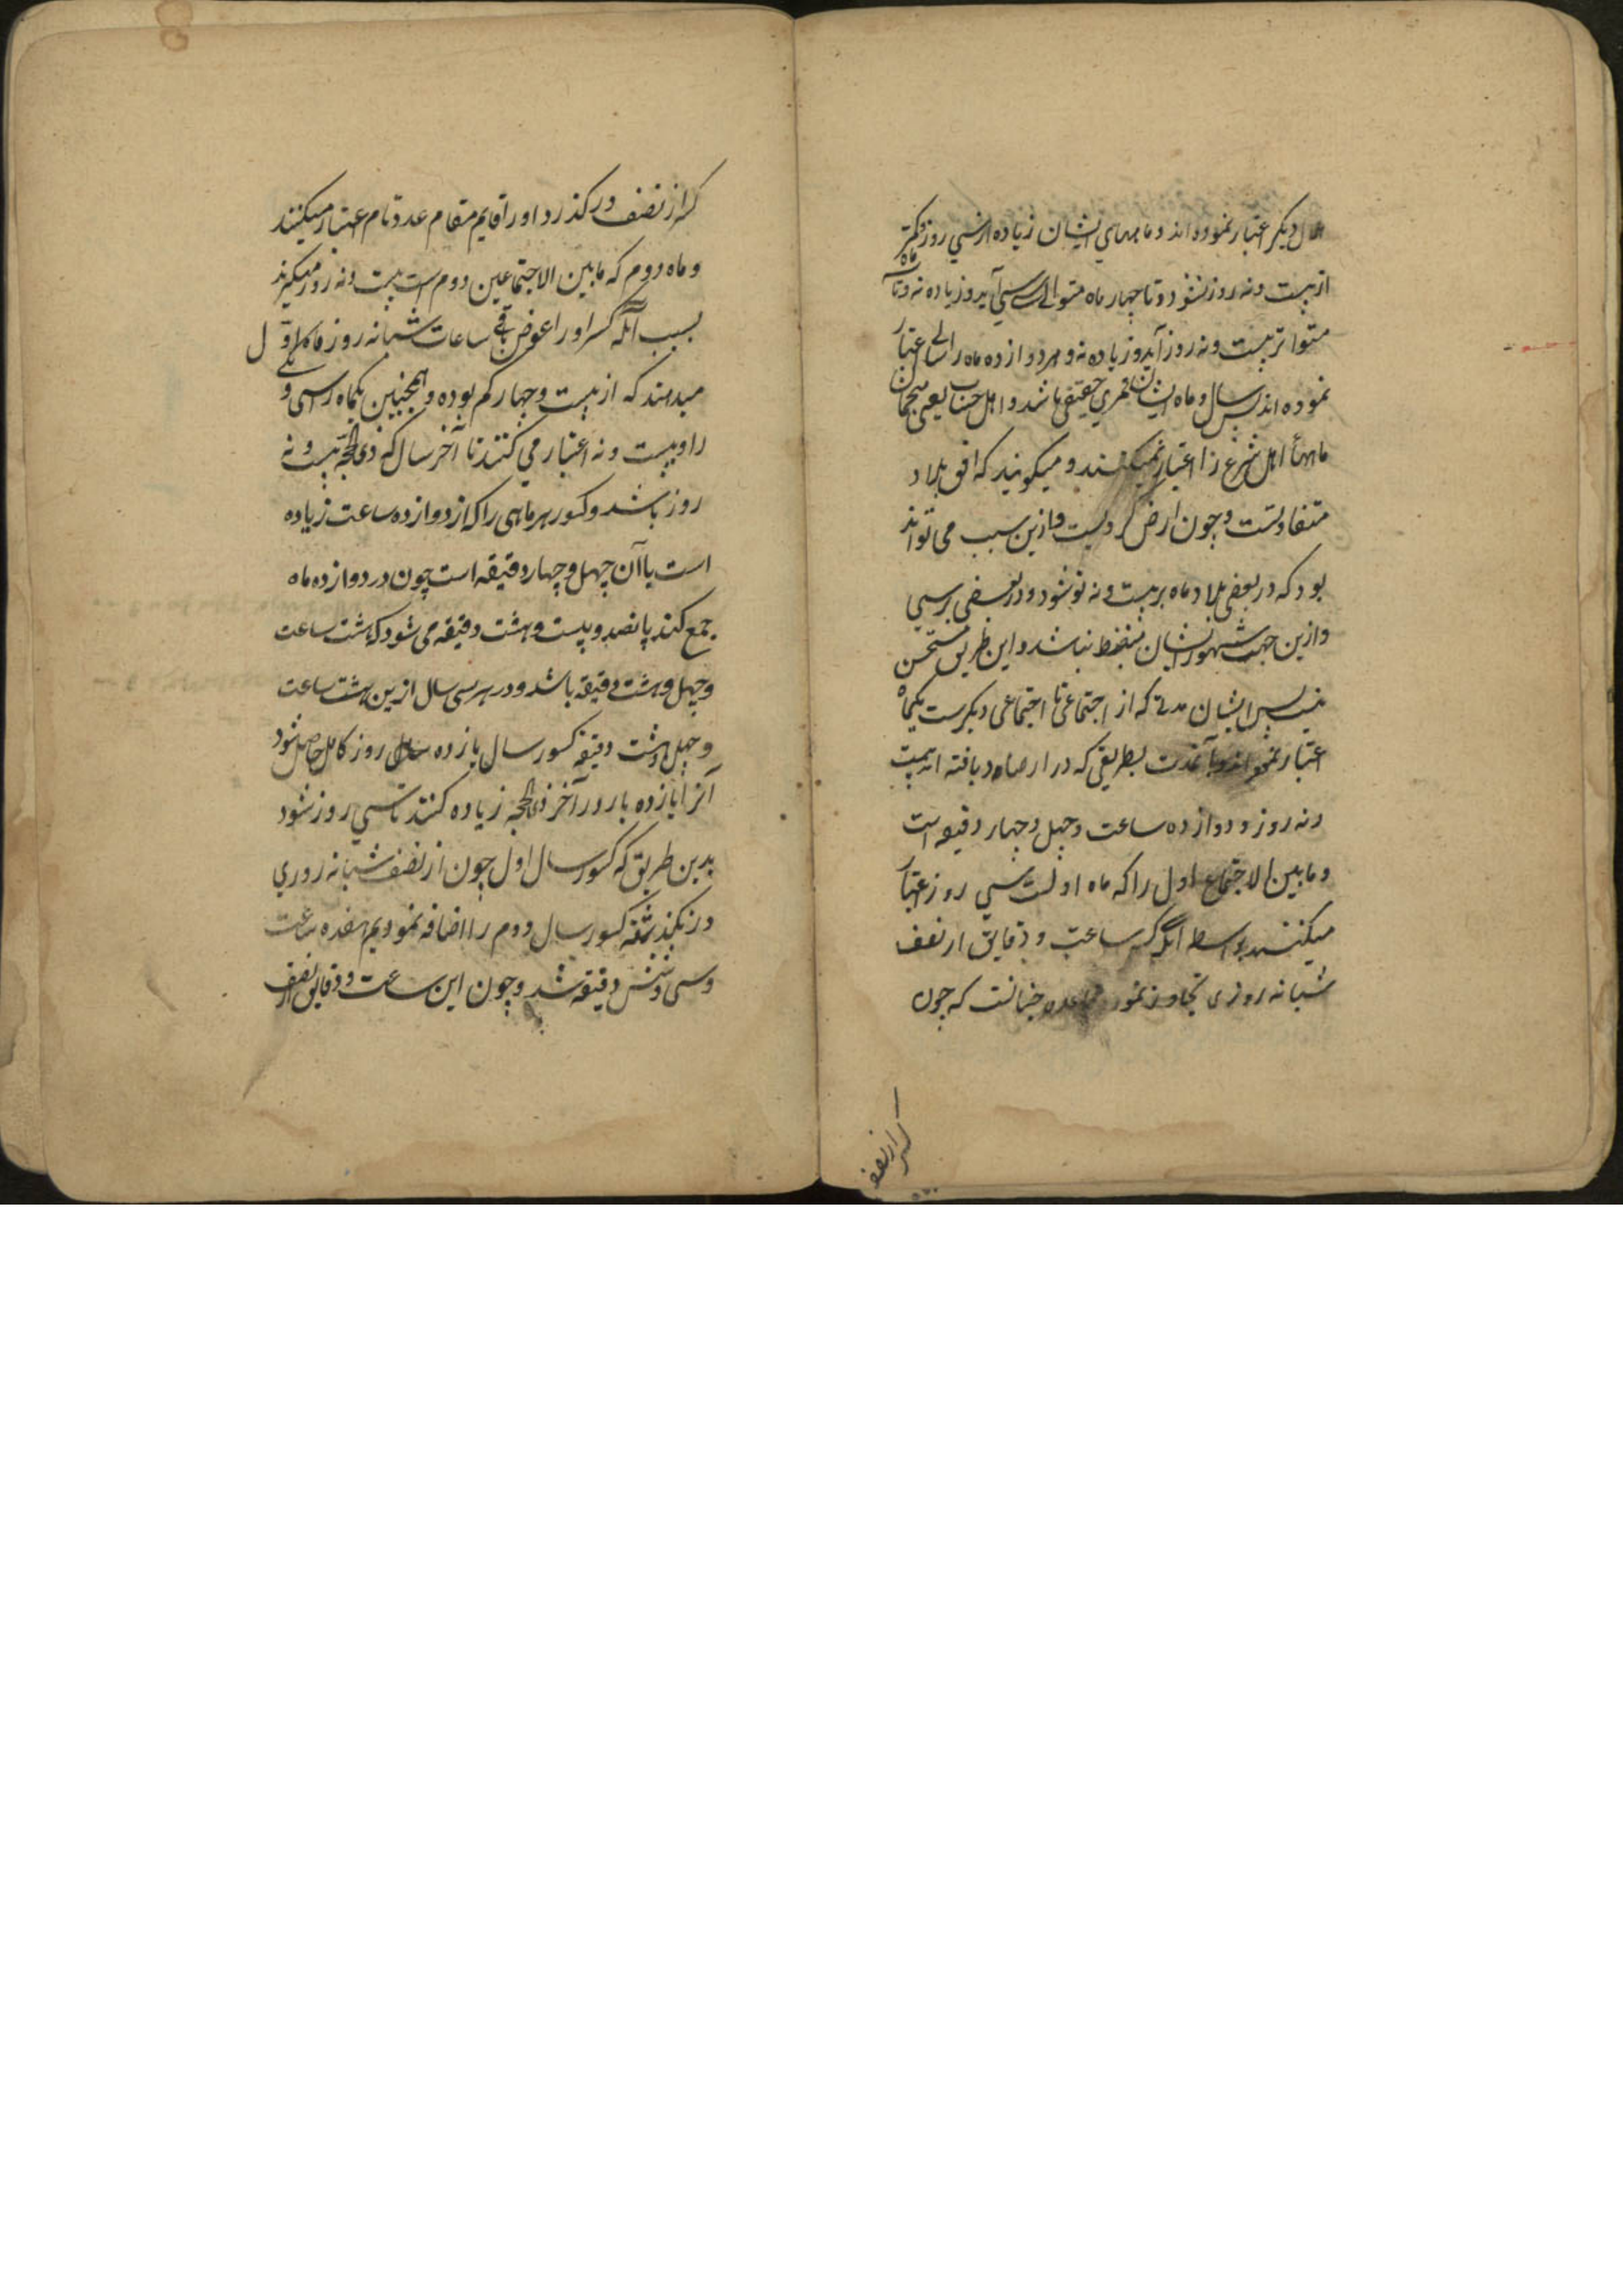 هلال دیکر اعتبار نموده اند و ماههای ایشان زیاده از سی روز و کمتر
از بیست و نه روز نشود و تا چهار ماه متوالی سی سی آید و زیاده نه و تا سه ماه
متواتر بیست و نه روز آید و زیاده نه و هر دوازده ماه را سالی اعتبار
نموده اند پس سال و ماه ایشان قمری حقیقی باشد و اهل حساب یعنی منجمان
ماههاٴ اهل شرع را اعتبار نمیکنند و میکویند که افق بلاد
متفاوتست و چون ارض کرویست و ازین سبب می تواند
بود که در بعضی بلاد ماه بر بیست و نه نو شود و در بعضی بر سی
و ازین جهت شهور ایشان منضبط نباشد و این طریق مستحسن
نیست پس ایشان مدتی که از اجتماعی تا اجتماعی دیکرست یکماه
اعتبار نموده اند و آنمدت بطریقی که در ارصاد یافته اند بیست
و نه روز و دوازده ساعت و چهل و چهار دقیقه است
و مابین الاجتماع اول را که ماه اولست سی روز اعتبار
میکنند بواسطه آنکه کسر ساعت و دقایق از نصف
شبانه روزی تجاوز نمود و قاعده چنانست که چون
کسر از نصف
کسر از نصف درکذرد او را قایم مقام عدد تام اعتبار میکنند
و ماه دوم که مابین الاجتماعین دوم است بیست و نه روز میکیرند
بسبب آنکه کسر او را عوض باقی ساعات شبانه روز ماه اول
میدهند که از بیست و چهار کم بوده و همچنین یکماه را سی و یکی
را و بیست و نه اعتبار می کنند تا آخر سال که ذی الحجه بیست و نه
روز باشد و کسور هر ماهی را که از دوازده ساعت زیاده
است با آن چهل و چهار دقیقه است چون در دوازده ماه
جمع کنند پانصد و بیست و هشت دقیقه می شود که هشت ساعت
و چهل و هشت دقیقه باشد و در هر سی سال ازین هشت ساعت
و چهل و هشت دقیقه کسور سال یازده روز کامل حاصل شود
آنرا یازده بار در آخر ذی الحجه زیاده کنند تا سی روز شود
بدین طریق که کسور سال اول چون از نصف شبانه روزی
در نکذشته کسور سال دوم را اضافه نمودیم هفده ساعت
و سی و شش دقیقه شد و چون این ساعت و دقایق از نصف